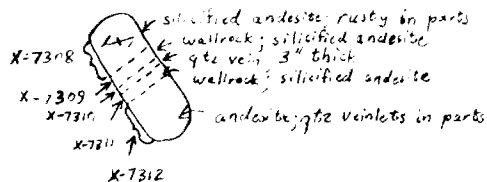 silicified andesite; rusty in parts
wallrock; silicified andesite
qtz vein 3" thick
wallrock; silicified andesite
andesite; qtz veinlets in parts
X-7308
X-7309
X-7310
X-7311
X-7312